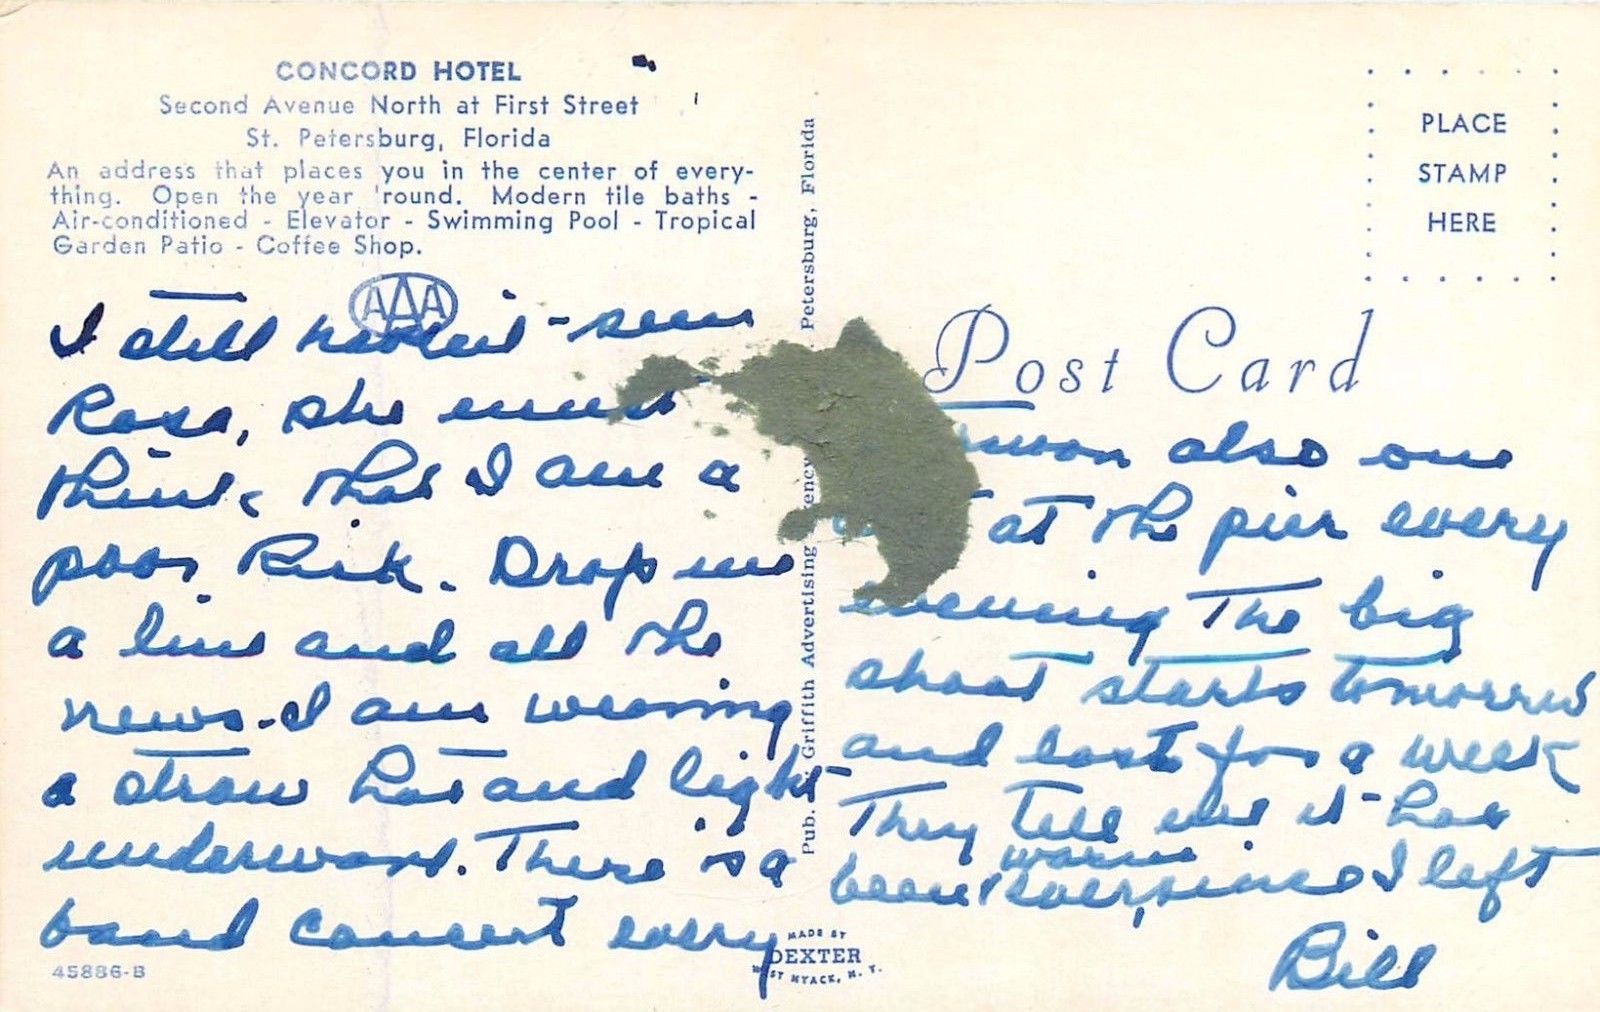 CONCORD HOTEL
Second Avenue North at First Street
St. Petersburg, Florida
An address that places you in the center of every-
thing. Open the year 'round. Modern tile baths -
Air-conditioned - Elevator - Swimming Pool - Tropical
Garden Patio - Coffee Shop.
AAA
I still haven't seen
Rosa, she must
think, that I am a
poor Rick. Drop me
a line and all the
news. I am wearing
a straw hat and light
underwear. There is a
band concert every
45886-B
Pub. Griffith Advertising Petersburg, Florida
MADE BY
DEXTER
WEST NYACK, N. Y.
PLACE
STAMP
HERE
Post Card
also one
at the pier every
evening The big
shoot starts tomorrow
and last for a week
They tell me it has
warm
been ever, since I left
Bill